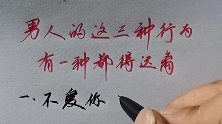 男人的这三种行为
有一种都得远离
一.不爱你